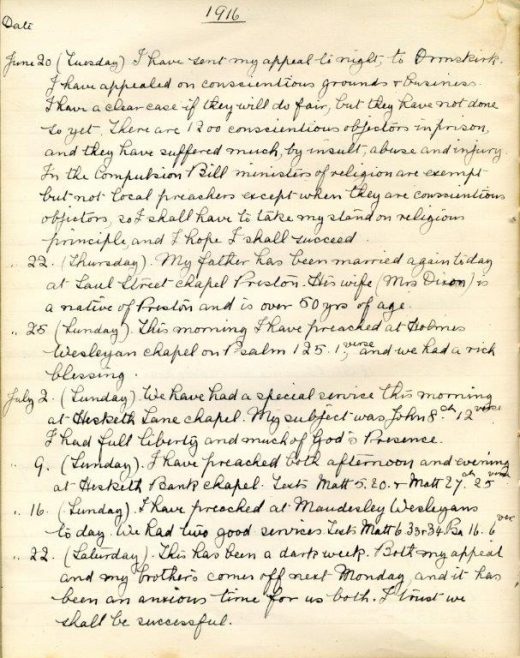 1916
Date
June 20 (Tuesday) I have sent my appeal to night, to Ormskirk.
I have appealed on conscientious grounds & business.
I have a clear case if they will do fair, but they have not done
so yet. There are 1200 conscientious objectors in prison,
and they have suffered much, by insult, abuse and injury.
In the Compulsion Bill ministers of religion are exempt
but not local preachers except when they are conscientious
objectors, so I shall have to take my stand on religious
principle, and I hope I shall succeed.
" 22. (Thursday). My father has been married again today
at Saul Street chapel Preston. His wife (Mrs Dixon) is
a native of Preston and is over 50 yrs of age.
" 25 (Sunday). This morning I have preached at Holmes
Wesleyan chapel on Psalm 125. 1, verse and we had a rich
blessing.
July 2. (Sunday). We have had a special service this morning
at Hesketh Lane chapel. My subject was John 8 ch 12 verse.
I had full liberty and much of God's Presence.
" 9. (Sunday). I have preached both afternoon and evening
at Hesketh Bank chapel. Texts Matt 5. 20. & Matt 27 ch 25 verse
" 16. (Sunday). I have preached at Mawdesley Wesleyans
to day. We had two good services Texts Matt 6. 33 & 34 Psa 16. 6 ver
" 22. (Saturday). This has been a dark week. Both my appeal
and my brother's comes off next Monday, and it has
been an anxious time for us both. I trust we
shall be successful.